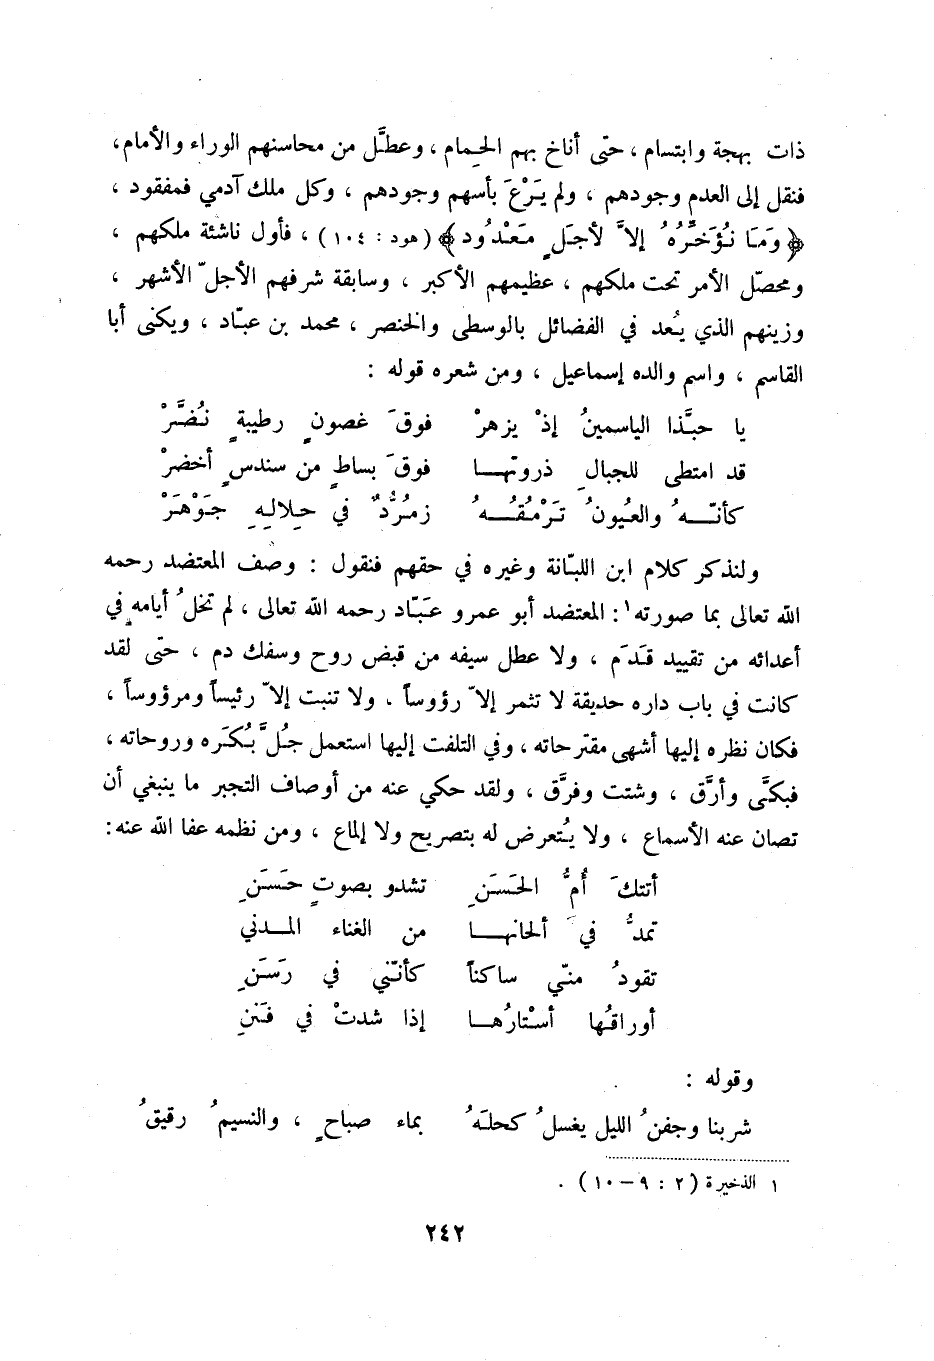 ذات بهجة وابتسام ، حتّى أناخ بهم الحِمام ، وعطَّل من محاسنهم الوراء والأمام،
فنقل إلى العدم وجودهم ، ولم يَرْعَ بأسهم وجودهم ، وكل ملك آدمي فمفقود ،
﴿ وَمَا نُؤَخِّرُهُ إلاَّ لأجَلٍ مَعْدُود ﴾ ( هود : ١٠٤ ) ، فأول ناشئة ملكهم ،
ومحصّل الأمر تحت ملكهم ، عظيمهم الأكبر ، وسابقة شرفهم الأجلّ الأشهر ،
وزينهم الذي يُعد في الفضائل بالوسطى والخنصر ، محمد بن عبّاد ، ويكنى أبا
القاسم ، واسم والده إسماعيل ، ومن شعره قوله :
يا حبَّذا الياسمينُ إذْ يزهرْ فوقَ غصونٍ رطيبةٍ نُضَّرْ
قد امتطى للجبالِ ذروتَها فوقَ بساطٍ من سندسٍ أخضرْ
كأنّهُ والعُيونُ تَرْمُقُهُ زمُرُّدٌ في خِلالِهِ جَوْهَرْ
ولنذكر كلام ابن اللبّانة وغيره في حقهم فنقول : وصف المعتضد رحمه
الله تعالى بما صورته١ : المعتضد أبو عمرو عَبّاد رحمه الله تعالى ، لم تخلُ أيامه في
أعدائه من تقييد قَدَم ، ولا عطل سيفه من قبض روح وسفك دم ، حتّى لقد
كانت في باب داره حديقة لا تثمر إلاّ رؤوساً ، ولا تنبت إلاّ رئيساً ومرؤوساً ،
فكان نظره إليها أشهى مقترحاته ، وفي التلفت إليها استعمل جُلَّ بُكَره وروحاته ،
فبكَّى وأرَّق ، وشتت وفرَّق ، ولقد حكي عنه من أوصاف التجبر ما ينبغي أن
تصان عنه الأسماع ، ولا يُتعرض له بتصريح ولا إلماع ، ومن نظمه عفا الله عنه:
أتتكَ أُمُّ الحَسَنِ تشدو بصوتٍ حَسَنِ
تمدُّ في ألحانها من الغناء المدني
تقودُ منّي ساكناً كأنّني في رَسَنِ
أوراقُها أسْتارُها إذا شدتْ في فَنَنِ
وقوله :
شربنا وجفنُ الليل يغسلُ كحلَهُ بماء صباحٍ ، والنسيمُ رقيقُ
١ الذخيرة ( ٢ : ٩ - ١٠ ) .
٢٤٢